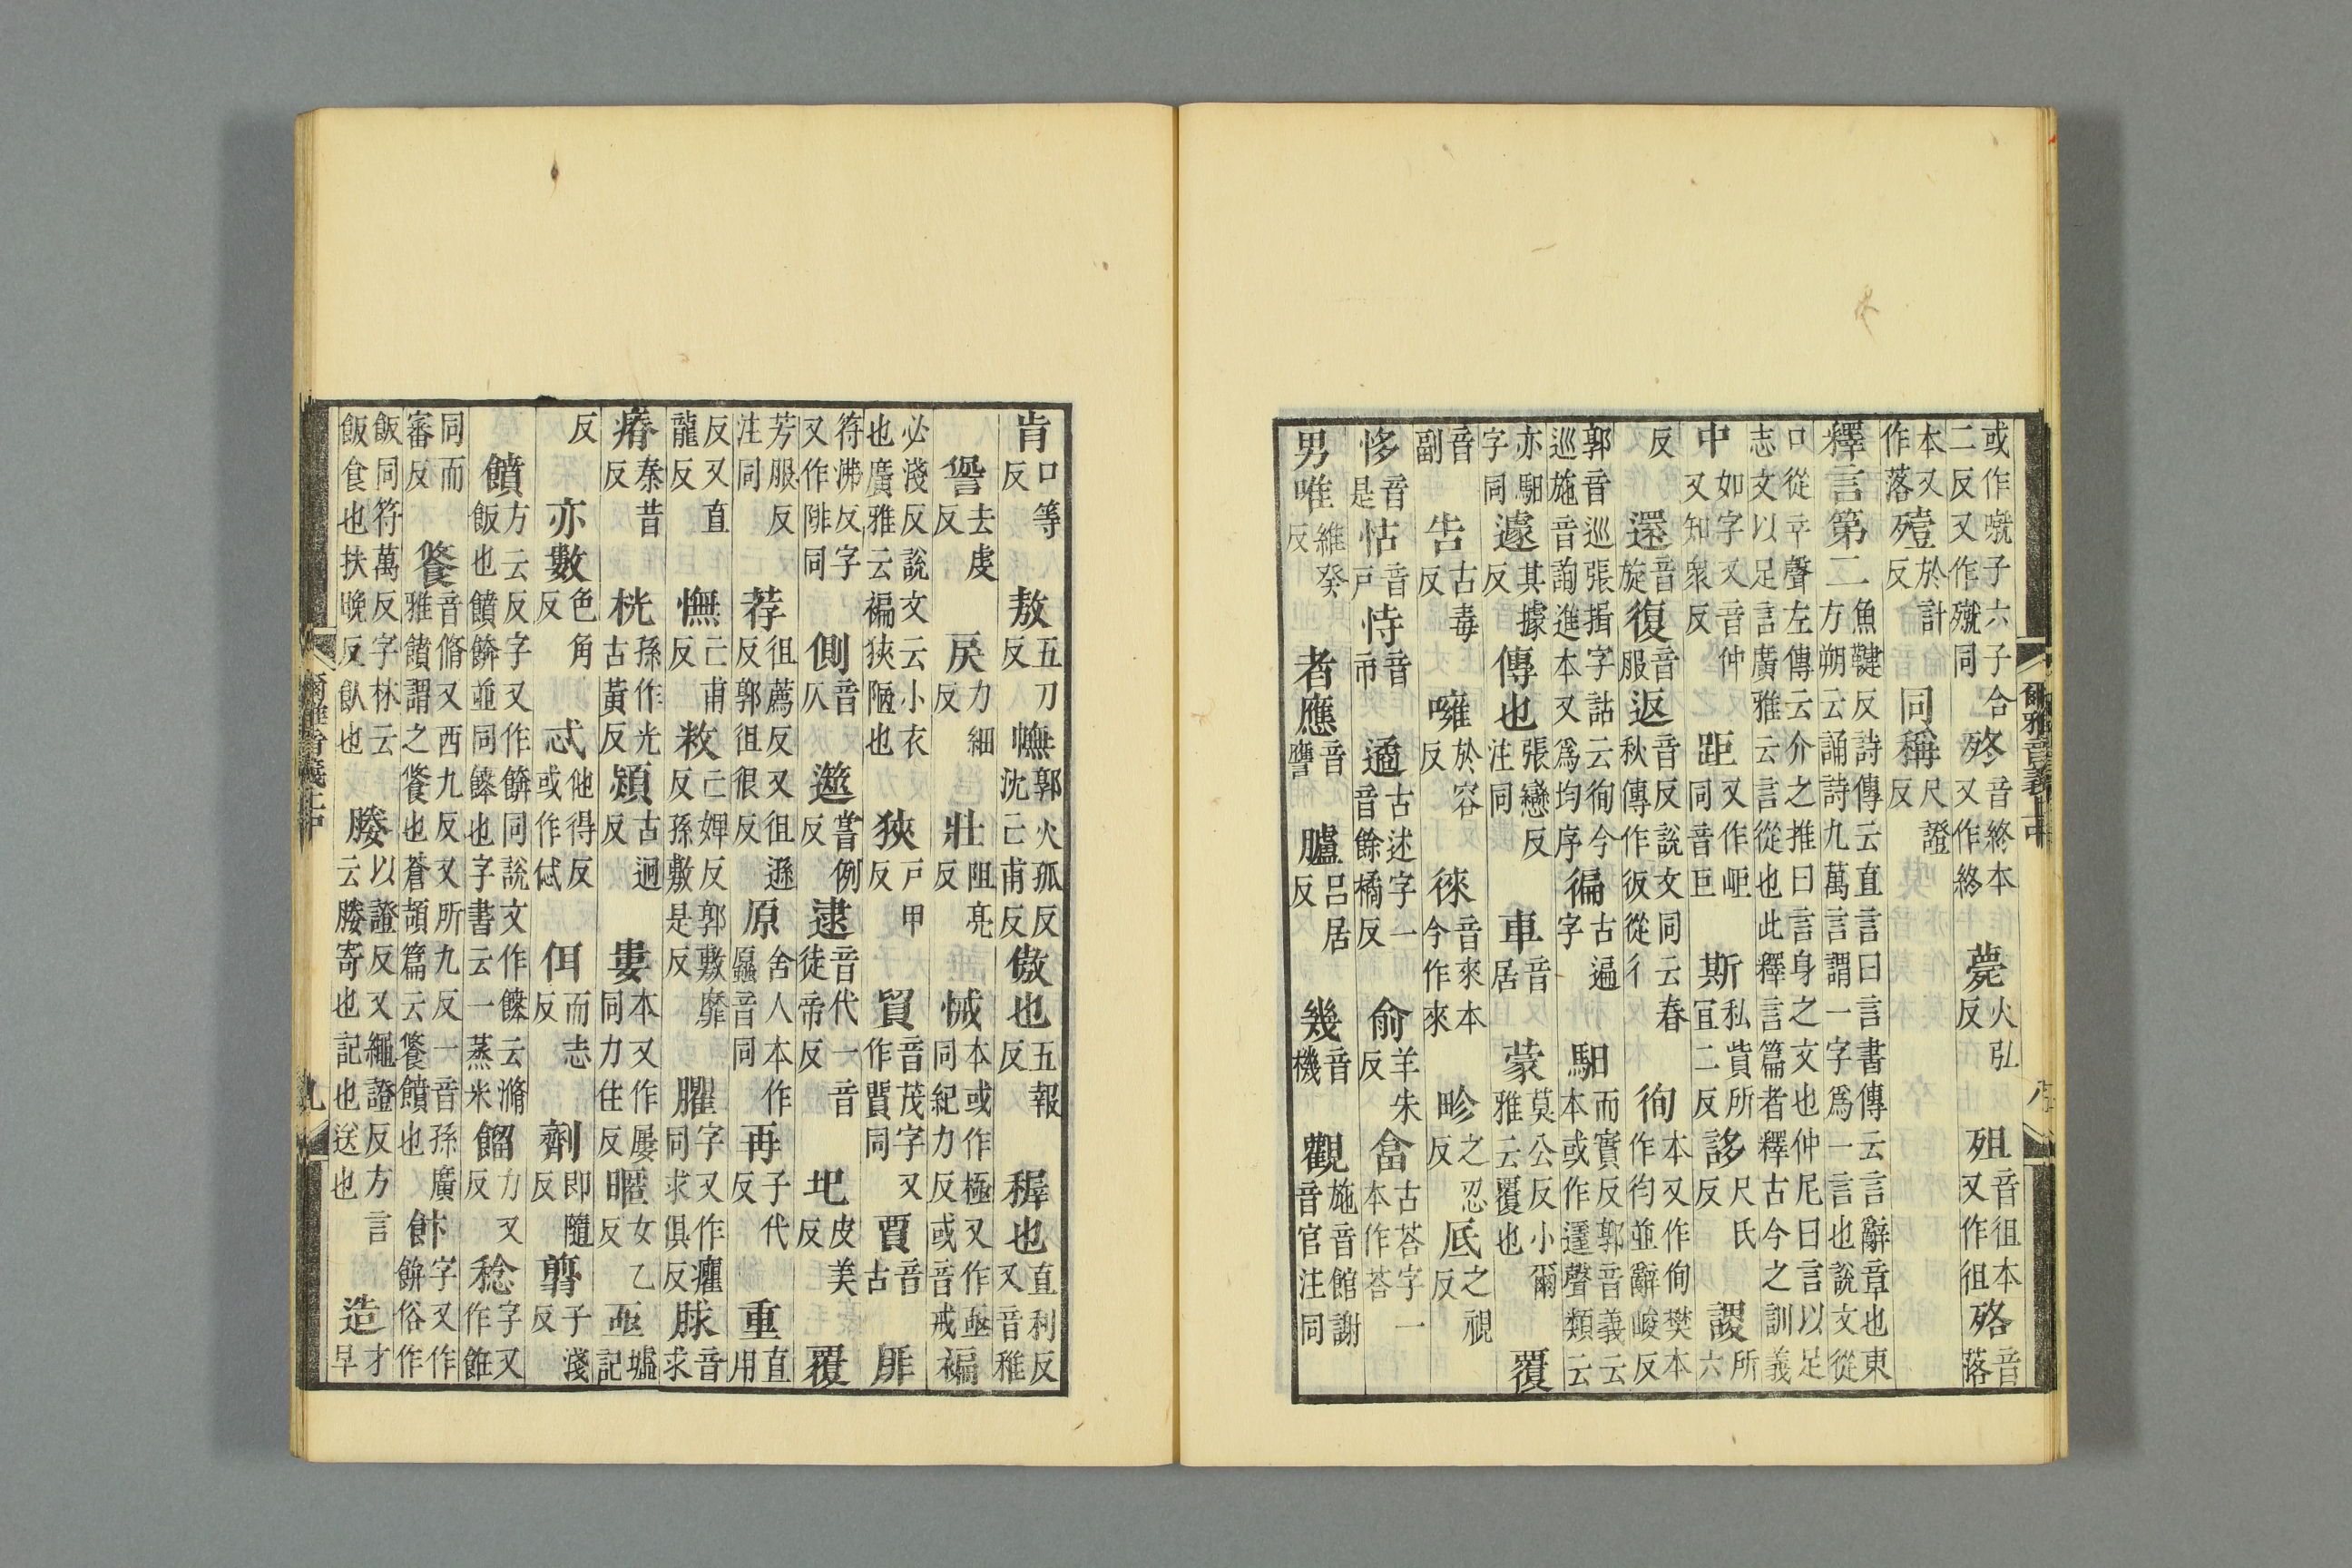 或作噈子六子合二反又作殧同 音終本又作終 薨火弘反 殂音徂本又作徂 音落
本又作落 殪於計反 同稱尺證反
釋言第二魚鞬反詩傳云直言曰言書傳云言辭章也東方朔云誦詩九萬言謂一字爲一言也說文從
口從䇂聲左傳云介之推曰言身之文也仲尼曰言以足志文以足言廣雅云言從也此釋言篇者釋古今之訓義
中如字又音仲又知衆反 距又作岠同音巨 斯私貲所宜二反 誃尺氏反 謖所六
反 還音旋 復音服 返音反說文同云春秋傳作彶從彳 徇本又作侚樊本作徇並辭峻反
郭音巡張揖字詁云徇今巡施音詢進本又爲均序 徧古遍字 馹而實反郭音義云本或作遳聲類云
亦馹字同 遽其據反 傳也張戀反注同 車音居 蒙莫公反小爾雅云覆也 覆
音副 告古毒反 噰於容反 徠音來本今作來 畛之忍反 厎之視反
恀音是 怙音戶 恃音市 遹古述字一音餘橘反 俞羊朱反 畣古荅字一本作荅
男唯維癸反 者應音譍 臚呂居反 幾音機 觀施音館謝音官注同
爾雅音義上中 八
肯口等反 敖五刀反 憮郭火孤反沈亡甫反 傲也五報反 稺也直利反又音稚
諐去虔反 戾力細反 壯阻亮反 悈本或作極又作亟同紀力反或音戒 褊
必淺反說文云小衣也廣雅云褊狹陋也 狹戶甲反 貿音茂字又作貿同 賈音古 厞
符沸反字又作陫同 側音仄 遾嘗例反 逮音代一音徒帝反 圮皮美反 覆
芳服反注同 荐徂薦反又徂遜反郭徂很反 原舍人本作厵音同 再子代反 重直用
反又直龍反 憮亡甫反 敉亡婢反郭敷靡反孫敷是反 臞字又作癯同求俱反 脙音求
瘠秦昔反 桄孫作光古黃反 熲古迥反 婁本又作屢同力住反 暱女乙反 亟墟記
反 亦數色角反 忒他得反或作貣 佴而志反 劑即隨反 翦子淺反
饙方云反字又作餴同說文作饙云滫飯也饙餴並同饙也字書云一蒸米 餾力又反 稔字又作飪
同而審反 餐音脩又西九反又所九反一音孫廣雅饙謂之餐也蒼頡篇云餐饙也 飰字又作餅俗作
飯同符萬反字林云飯食也扶晚反飤也 媵以證反又繩證反方言云媵寄也記也送也 造才早
爾雅音義上中 九